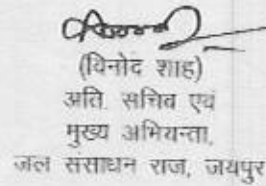 (विनोद शाह)
अति. सचिव एवं
मुख्य अभियन्ता,
जल संसाधन राज, जयपुर